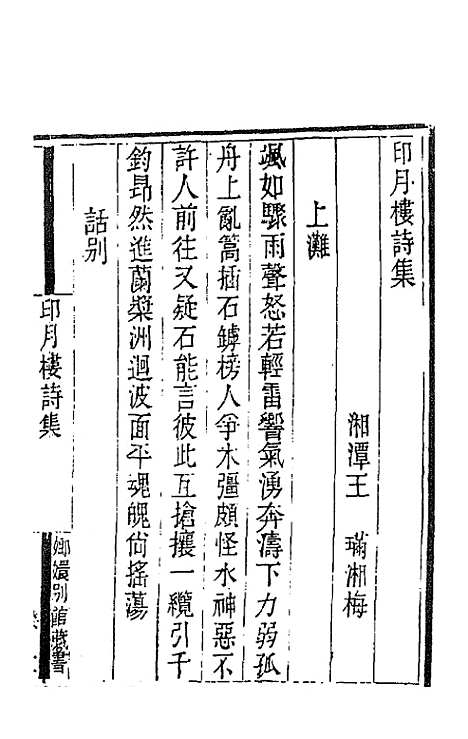 印月樓詩集
湘潭王 璊湘梅
上灘
颯如驟雨聲怒若輕雷響氣湧奔濤下力弱孤
舟上亂篙插石罅榜人爭木彊頗怪水神惡不
許人前往又疑石能言彼此互搶攘一纜引千
鈞昂然進蘭槳洲迴波面平魂魄尙搖蕩
話别
印月樓詩集
嫏嬛别館藏書